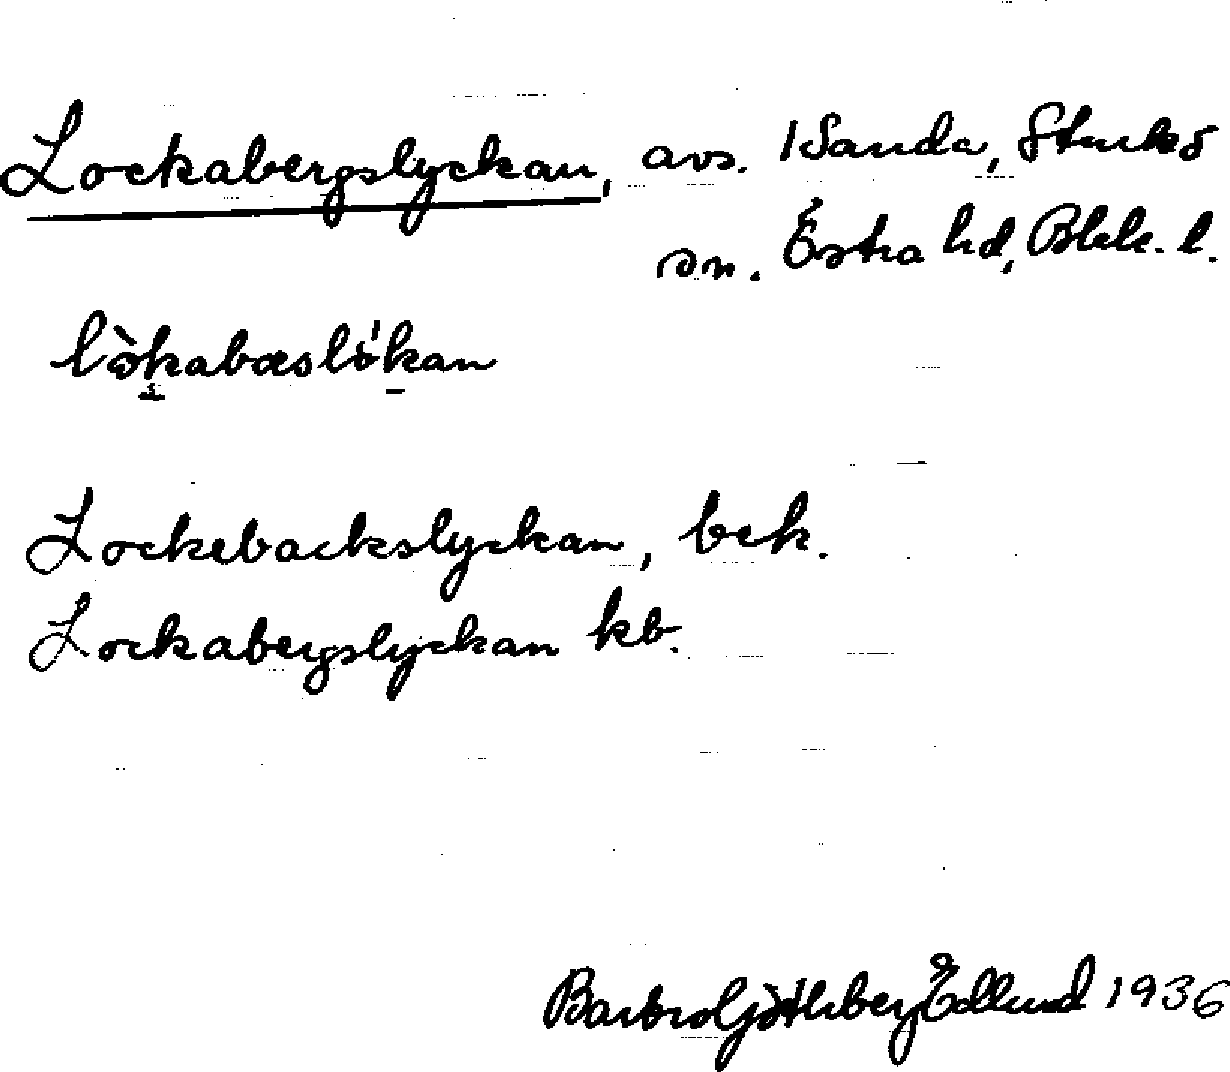 Lockabergslyckan, avs. 1 Sanda, Sturkö
sn. Östra hd, Blek. l.
lòkabæslókan
Lockebackslyckan, bek.
Lockabergslyckan kb.
Barbro Götherberg Edlund 1936